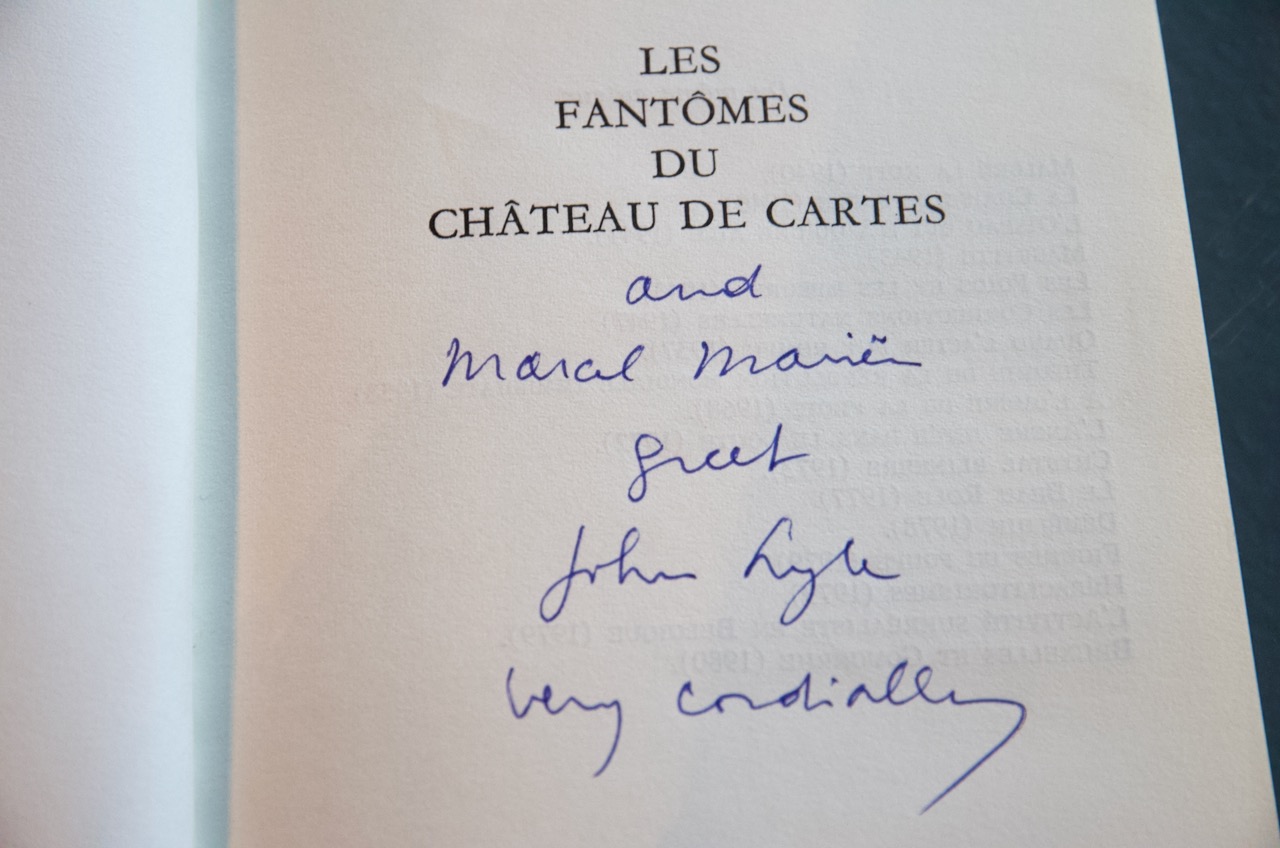 LES
FANTÔMES
DU
CHÂTEAU DE CARTES
and
Marcel Mariën
greet
John Lyle
very cordially